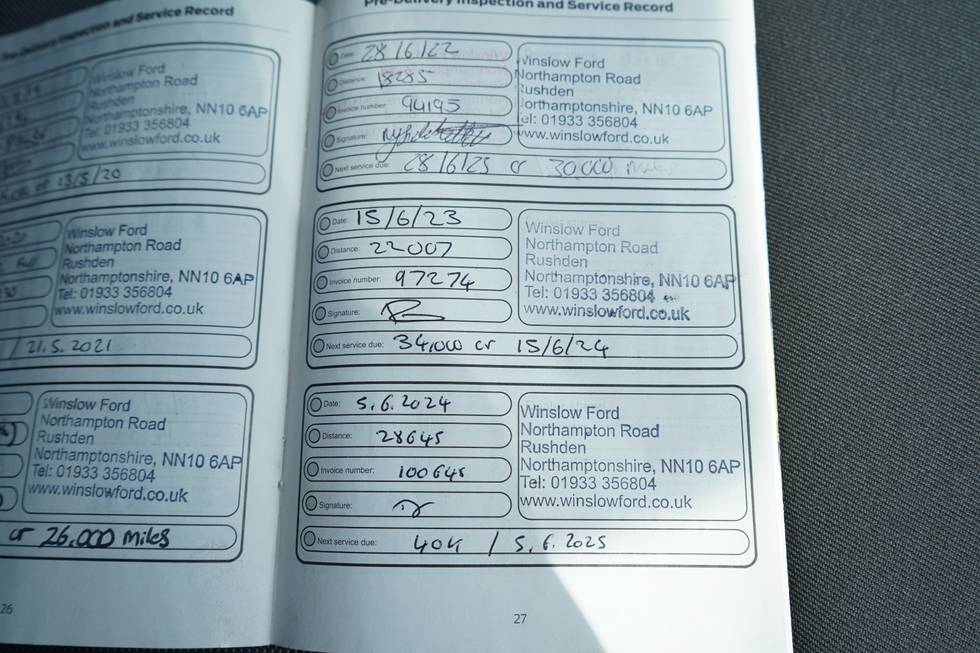 Pre-Delivery Inspection and Service Record
Winslow Ford
Northampton Road
Rushden
Northamptonshire, NN10 6AP
Tel: 01933 356804
www.winslowford.co.uk
Winslow Ford
Northampton Road
Rushden
Northamptonshire, NN10 6AP
Tel: 01933 356804
www.winslowford.co.uk
/ 21.5.2021
Winslow Ford
Northampton Road
Rushden
Northamptonshire, NN10 6AP
Tel: 01933 356804
www.winslowford.co.uk
or 26,000 miles
26
Pre-Delivery Inspection and Service Record
Date: 28/6/22
Distance: 18285
Invoice number: 94195
Signature:
Winslow Ford
Northampton Road
Rushden
Northamptonshire, NN10 6AP
Tel: 01933 356804
www.winslowford.co.uk
Next service due: 28/6/23 or 30,000 miles
Date: 15/6/23
Distance: 22007
Invoice number: 97274
Signature:
Winslow Ford
Northampton Road
Rushden
Northamptonshire, NN10 6AP
Tel: 01933 356804
www.winslowford.co.uk
Next service due: 34,000 or 15/6/24
Date: 5.6.2024
Distance: 28645
Invoice number: 100645
Signature:
Winslow Ford
Northampton Road
Rushden
Northamptonshire, NN10 6AP
Tel: 01933 356804
www.winslowford.co.uk
Next service due: 40K / 5.6.2025
27